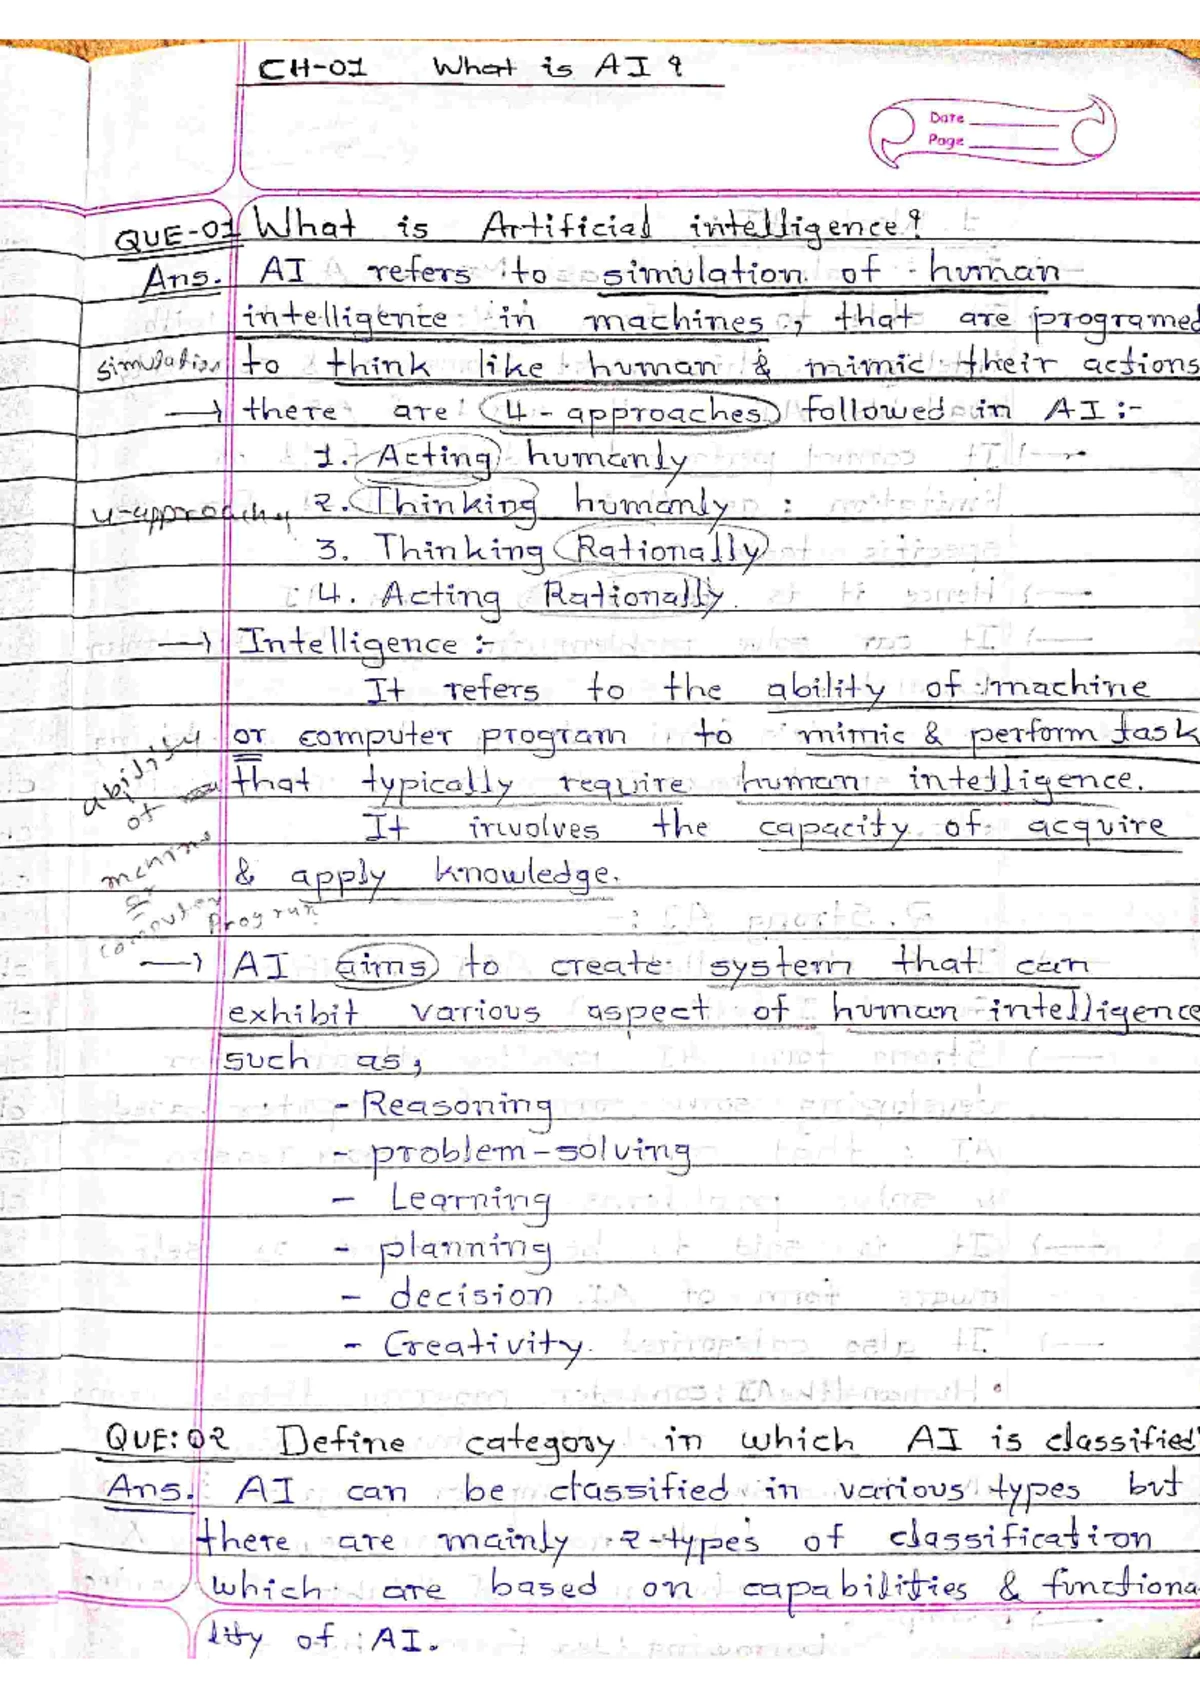 CH-01 What is AI ?
Date
Page
QUE-01 What is Artificial intelligence?
Ans. AI refers to simulation of human
intelligence in machines, that are programed
simulation
to think like human & mimic their actions
→ there are 4-approaches followed in AI :-
1. Acting humanly
4-approach
2. Thinking humanly :
3. Thinking Rationally
4. Acting Rationally.
→ Intelligence :-
It refers to the ability of machine
or computer program to mimic & perform task
that typically require human intelligence.
It involves the capacity of acquire
& apply knowledge.
ability
of
machine
or
computer
program
→ AI aims to create system that can
exhibit various aspect of human intelligence
such as,
- Reasoning
- problem-solving
- Learning
- planning
- decision
- Creativity.
QUE:02 Define category in which AI is classified
Ans. AI can be classified in various types but
there are mainly 2-types of classification
which are based on capabilities & functiona
lity of AI.